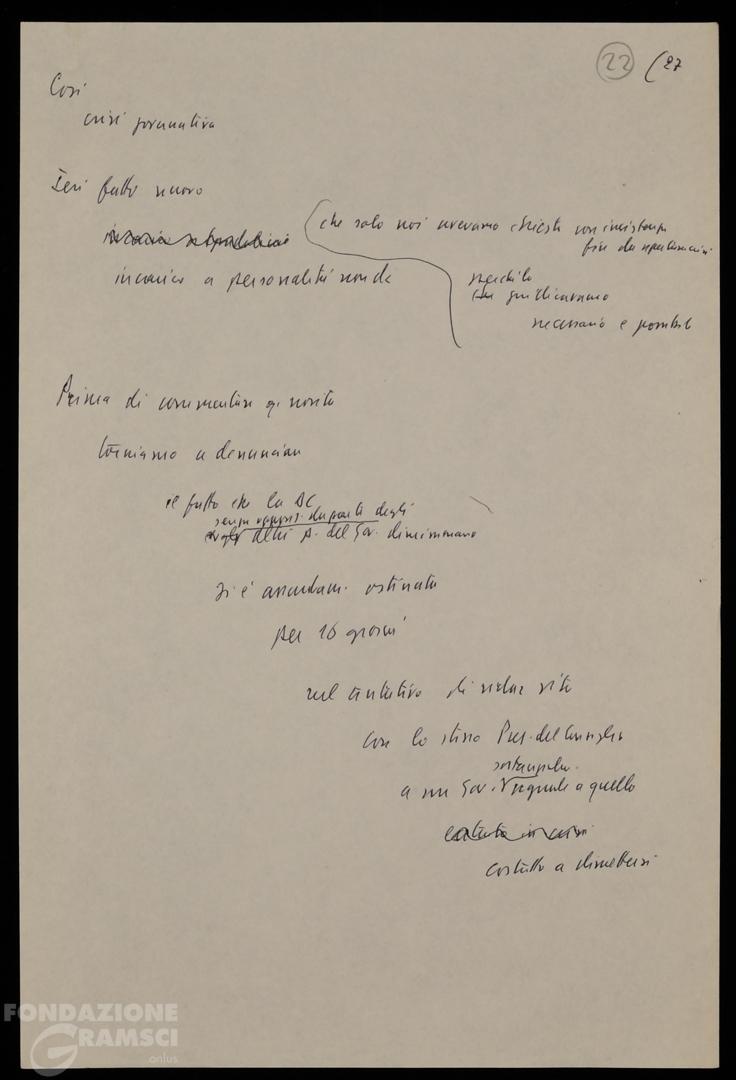 22 (27
Così
crisi governativa
Ieri fatto nuovo
incarico a personalità non dc
che solo noi avevamo chiesto con insistenza
fin da
perché lo
giudicavamo
necessario e possibile
Prima di commentare q. novità
torniamo a denunciare
il fatto che la DC
senza oppos. da parte degli
altri p. del Gov. dimissionario
si è ostinata
per 16 giorni
nel tentativo di ridar vita
con lo stesso Pres. del Consiglio
sostanzialm.
a un Gov. uguale a quello
costretto a dimettersi
FONDAZIONE
GRAMSCI
onlus